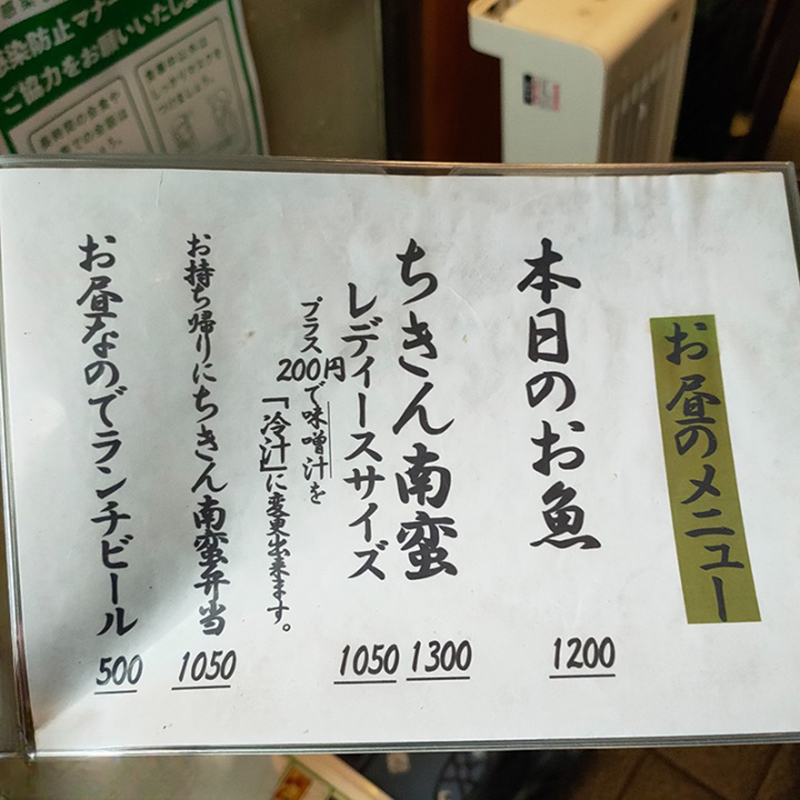 お昼のメニュー
本日のお魚
1200
ちきん南蛮
1300
レディースサイズ
1050
プラス200円で味噌汁を
「冷汁」に変更出来ます。
お持ち帰りにちきん南蛮弁当
1050
お昼なのでランチビール
500
染防止マナー
ご協力をお願いいたしま